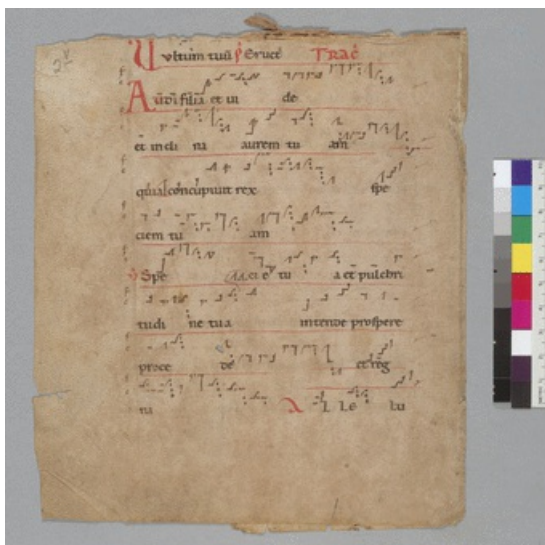 Vultum tuū ꝓ Eruct̄ Tract̄
Audi filia et ui de
et incli na aurem tu am
quia concupiuit rex spe
ciem tu am
Spe ci e tu a et pulchri
tudi ne tua intende prospere
proce de et reg
na A L Le lu